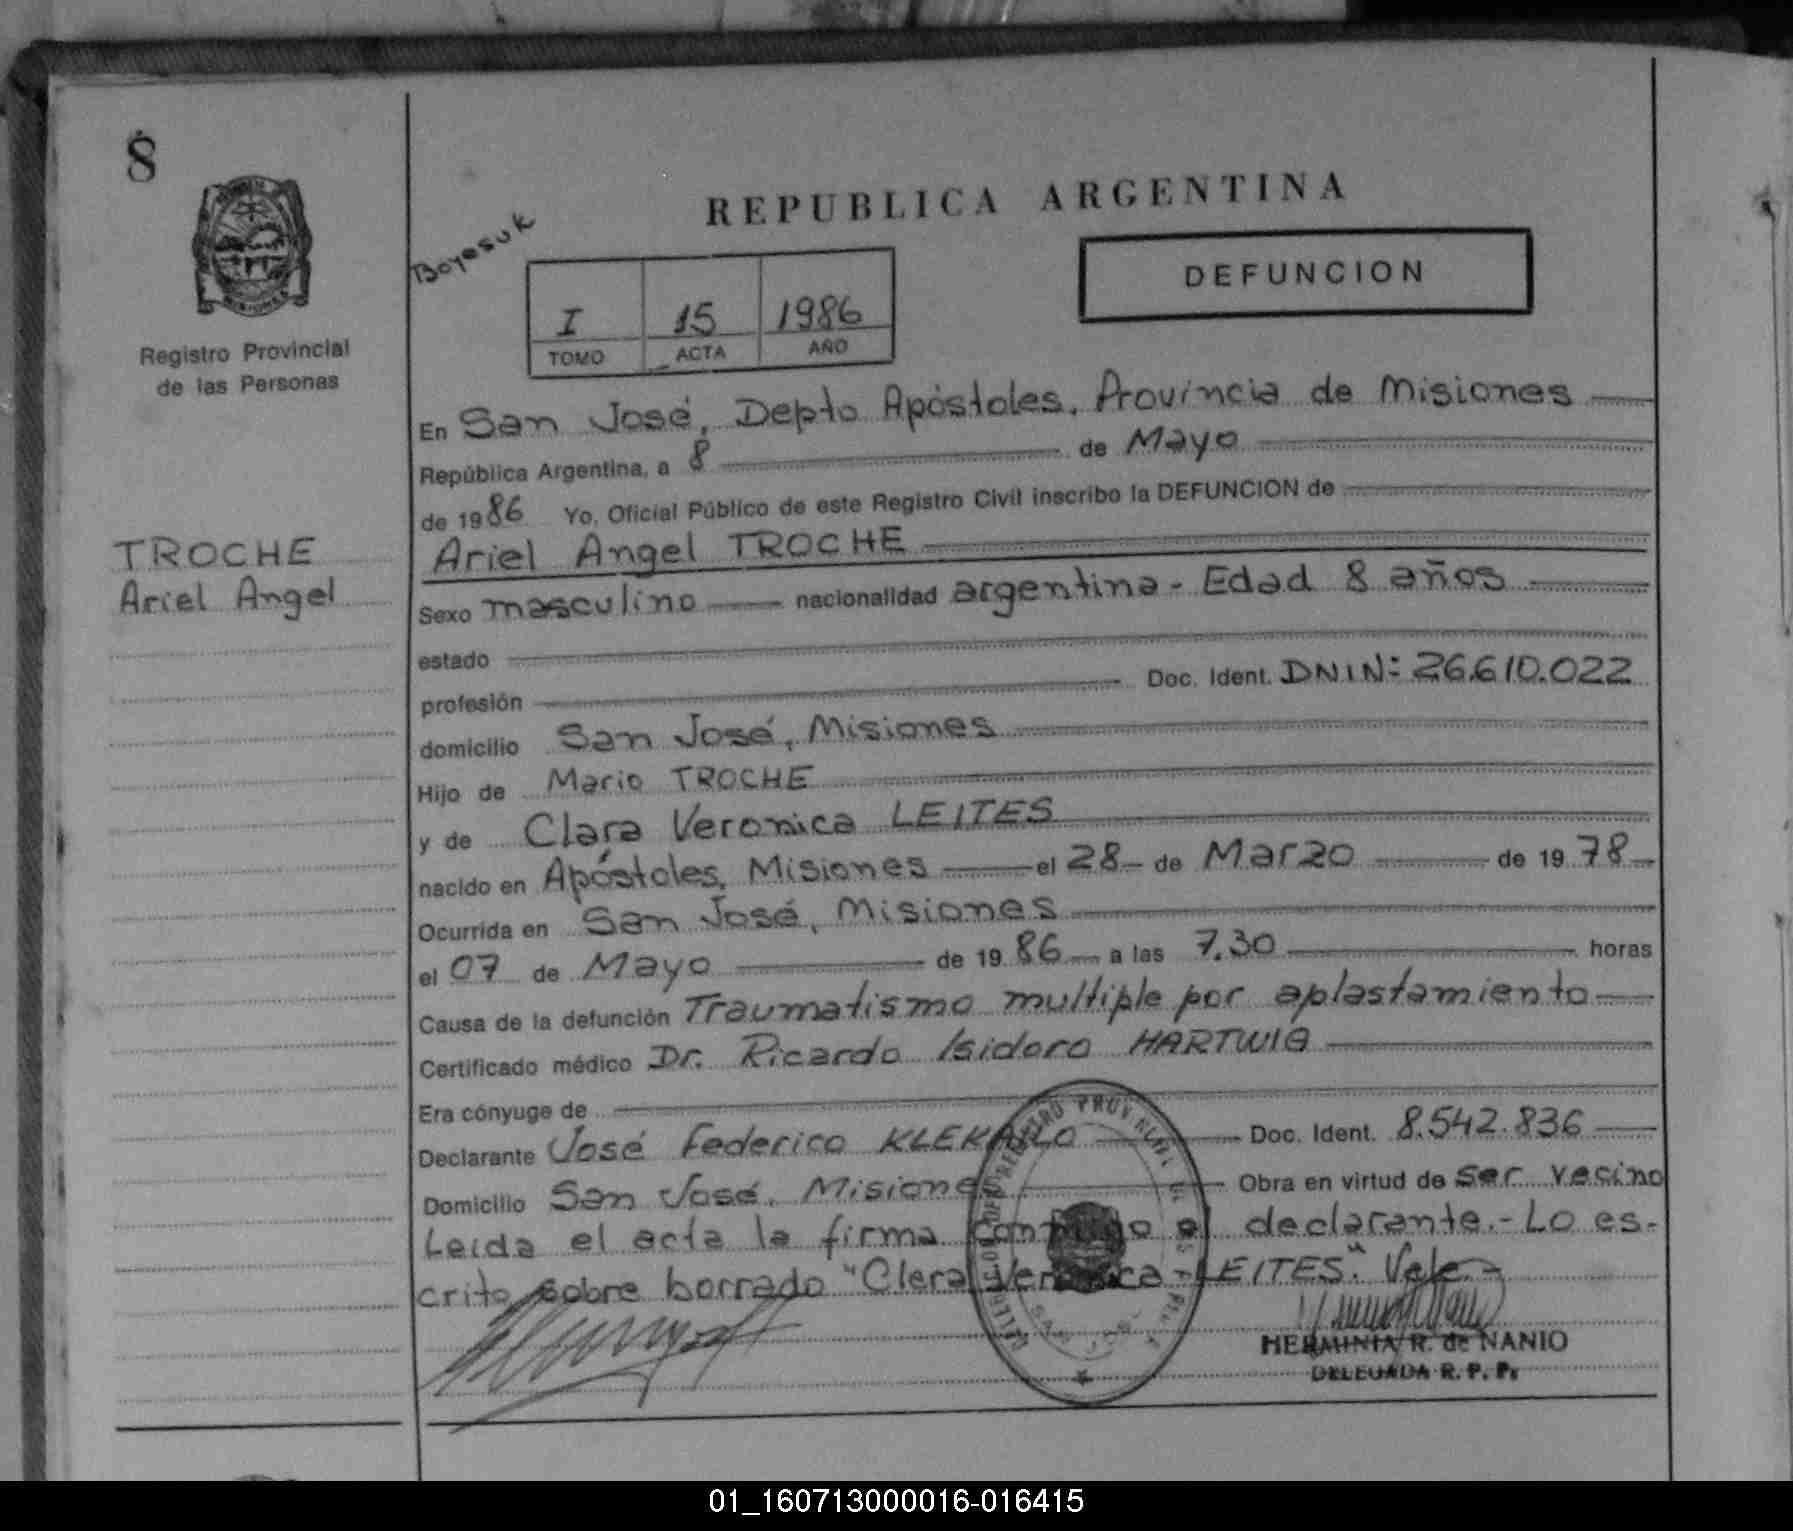 8
Registro Provincial
de las Personas
TROCHE
Ariel Angel
REPUBLICA ARGENTINA
DEFUNCION
I 15 1986
TOMO ACTA AÑO
En San José, Depto Apóstoles, Provincia de Misiones
República Argentina, a 8 de Mayo
de 1986 Yo, Oficial Público de este Registro Civil inscribo la DEFUNCION de
Ariel Angel TROCHE
Sexo masculino nacionalidad argentina - Edad 8 años
estado
profesión Doc. Ident. DNI N: 26.610.022
domicilio San José, Misiones
Hijo de Mario TROCHE
y de Clara Veronica LEITES
nacido en Apóstoles, Misiones el 28 de Marzo de 1978
Ocurrida en San José, Misiones
el 07 de Mayo de 1986 a las 7.30 horas
Causa de la defunción Traumatismo multiple por aplastamiento
Certificado médico Dr. Ricardo Isidoro HARTWIG
Era cónyuge de
Declarante José Federico Doc. Ident. 8.542.836
Domicilio San José, Misiones Obra en virtud de ser vecino
Leída el acta la firma conmigo el declarante.- Lo es-
crito sobre borrado "Clara Veronica - LEITES". Vale.-
HERMINIA R. de NANIO
DELEGADA R. P. P.
01_160713000016-016415